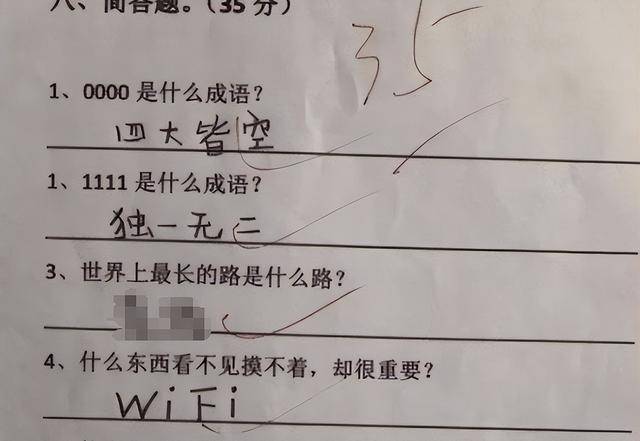 八、简答题。（35 分）
35
1、0000 是什么成语？
四大皆空
1、1111 是什么成语？
独一无二
3、世界上最长的路是什么路？
4、什么东西看不见摸不着，却很重要？
WiFi